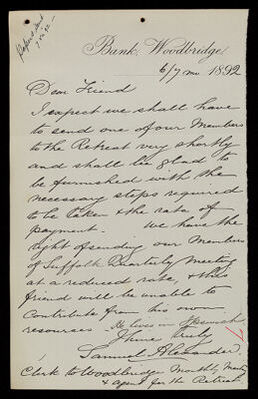 Papers sent
7.7.92
Bank, Woodbridge
6/7 mo 1892
Dear Friend
I expect we shall have
to send one of our Members
to the Retreat very shortly
and shall be glad to
be furnished with the
necessary steps required
to be taken & the rate of
payment - We have the
right of sending our Members
of Suffolk Quarterly Meeting
at a reduced rate, & this
friend will be unable to
contribute from his own
resources - He lives in Ipswich
Thine truly
Samuel Alexander
Clerk to Woodbridge Monthly Meetg
& agent for the Retreat.